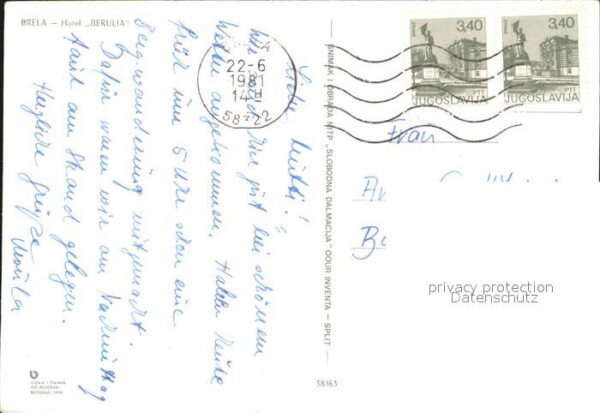 BRELA – Hotel „BERULIA"
Liebe Mutti!
Wir sind hier gut bei schönem
Wetter angekommen. Haben heute
früh um 5 Uhr schon eine
Bergwanderung mitgemacht.
Dafür waren wir am Nachmittag
faul am Strand gelegen.
Herzliche Grüße
22-6
1981
14H
58322
3,40
PTT
JUGOSLAVIJA
3,40
PTT
JUGOSLAVIJA
Frau
SNIMAK I OBRADA NTP „SLOBODNA DALMACIJA" OOUR INVENTA – SPLIT
IZDAJE I ŠTAMPA
BEOGRAD, 1978
58163
privacy protection
Datenschutz